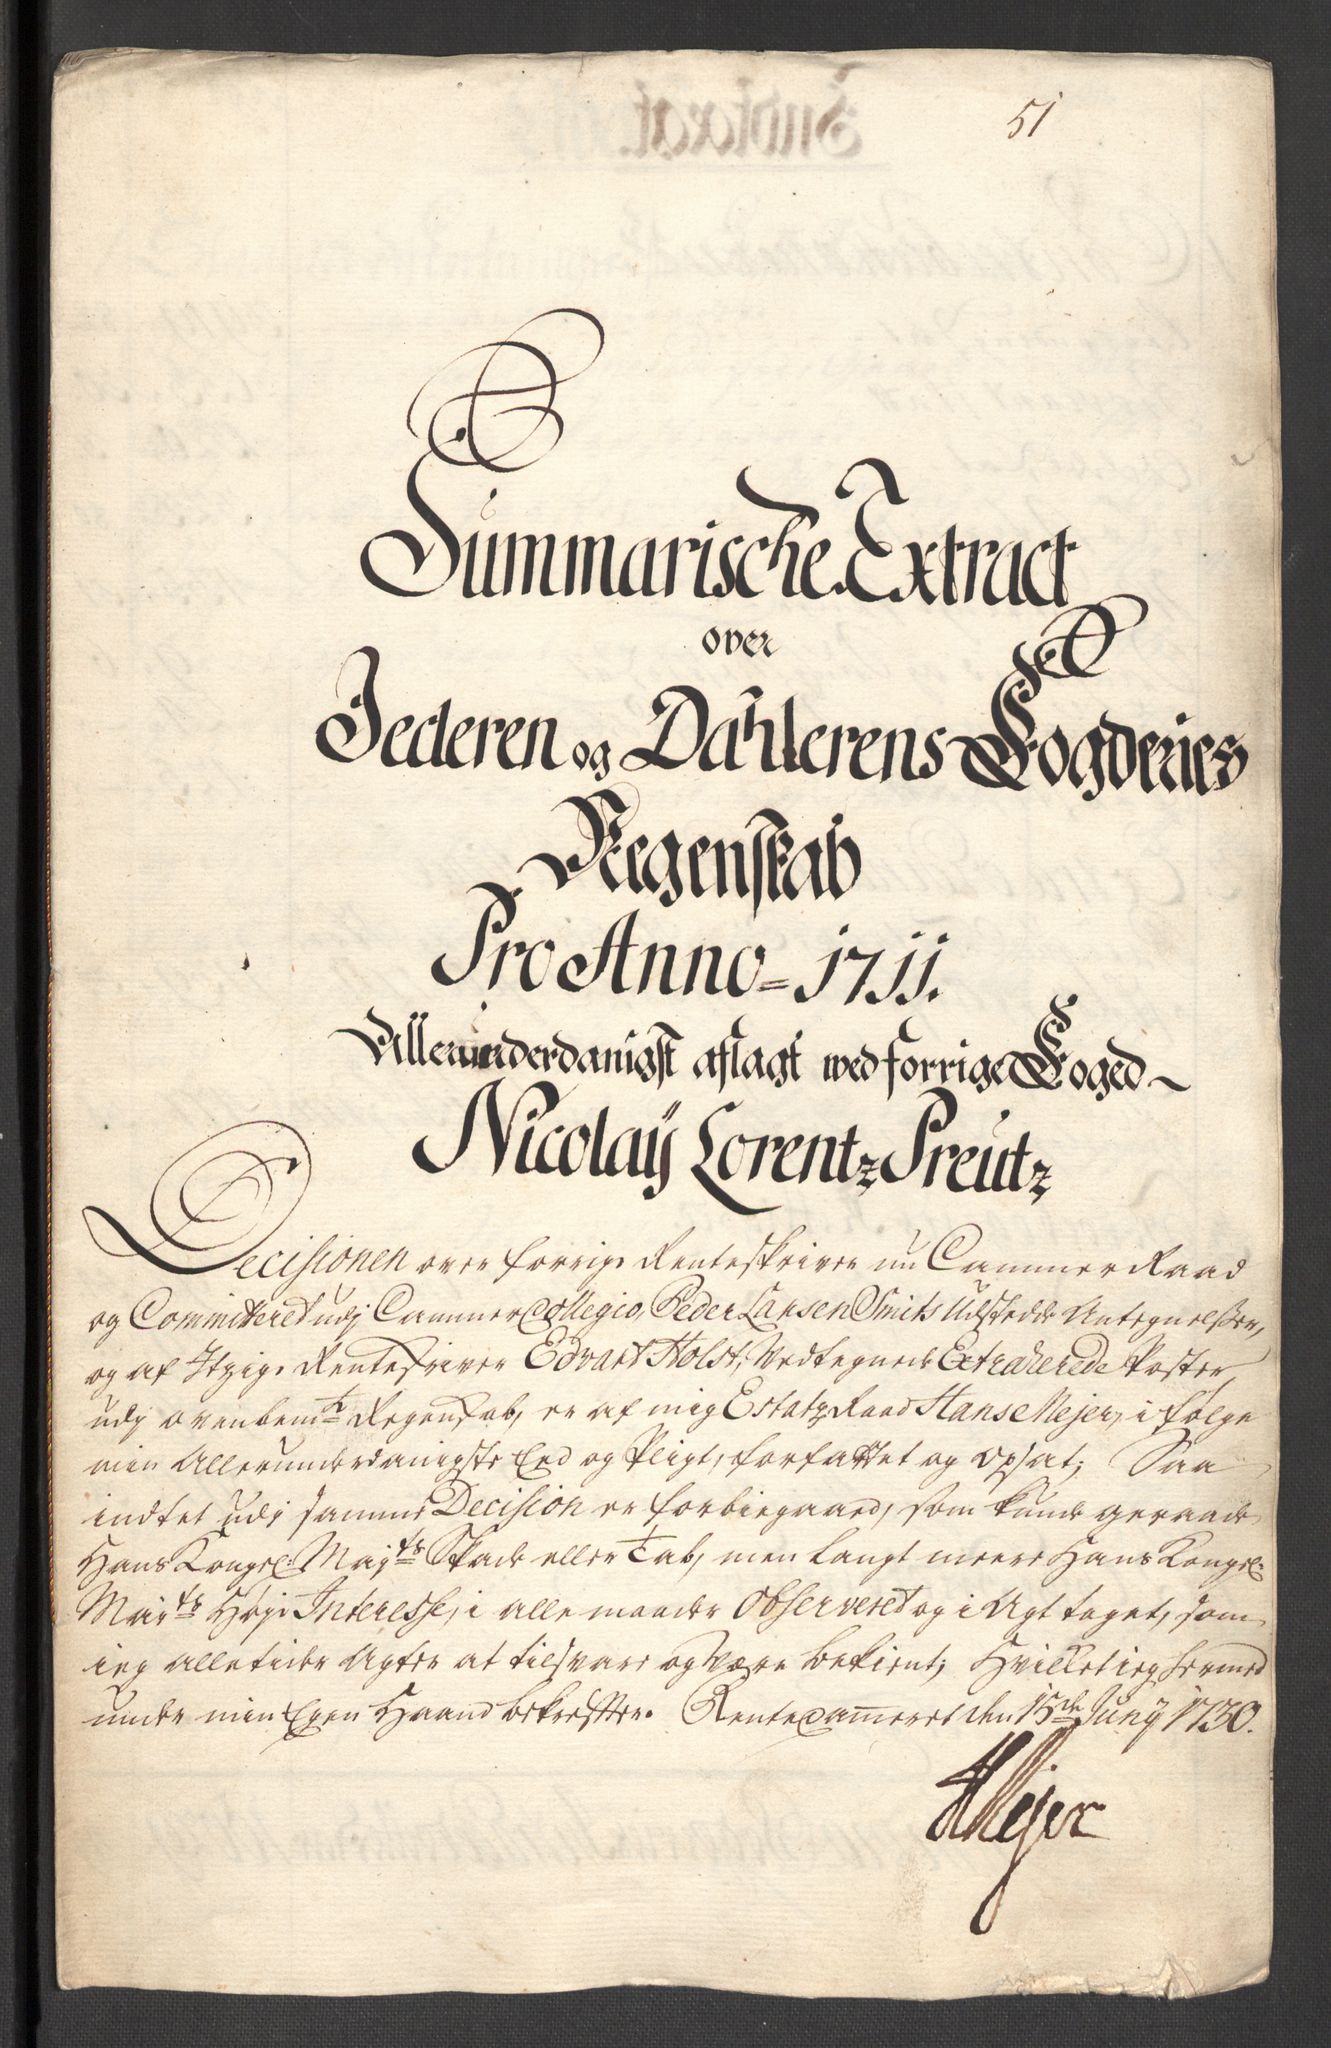 51
Summarische Extract
over
Jederen og Dahlerens Fogderies
Regenskab
Pro Anno = 1711.
Allerunderdanigst aflagt wed forrige Foged
Nicolaÿ Lorentz Preutz
Decisionen over forrige Renteskriver nu Cammer Raad
og Committeret udj Cammer Collegio, Peder Larsen Smits Udstedde Antegnelßer,
og af Itzige Renteskriver Edvart Holst, Vedtegnede Extraherede Poster,
udj ovenbemte Regenskab, er af mig Estatz Raad Hans Mejer, i følge
min Allerunderdanigste Eed og Pligt, forfattet og Opsat; Saa
indtet udj samme Decision er forbiegaaed, som kunde geraade
Hans Kongel: Mayts Skade eller Tab, men langt meere Hans Kongel:
Mayts Høje Interesse, i alle maader Observeret og i Agt taget, som
ieg alletider Agter at tilsvare og være bekient; Hvilket ieg hermed
under min Egen Haand bekrefter. Rentecammeret den 15de Junÿ 1730.
HMejer